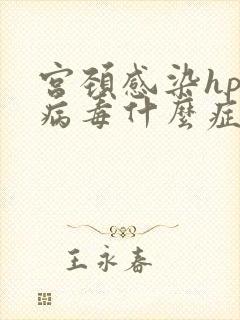 宫颈感染hp
病毒什麼症
王永春